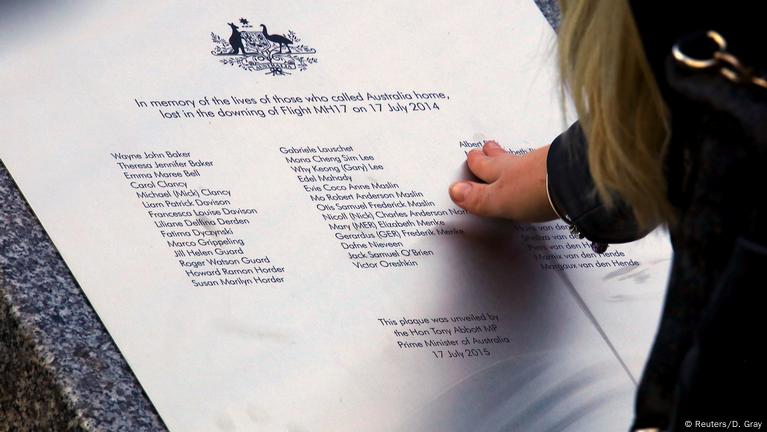 In memory of the lives of those who called Australia home,
lost in the downing of Flight MH17 on 17 July 2014
Wayne John Baker
Theresa Jennifer Baker
Emma Maree Bell
Carol Clancy
Michael (Mick) Clancy
Liam Patrick Davison
Francesca Louise Davison
Liliane Dellina Derden
Fatima Dyczynski
Marco Grippeling
Jill Helen Guard
Roger Watson Guard
Howard Ramon Horder
Susan Marilyn Horder
Gabriele Lauschet
Mona Cheng Sim Lee
Why Keong (Gary) Lee
Edel Mahady
Evie Coco Anne Maslin
Mo Robert Anderson Maslin
Otis Samuel Frederick Maslin
Nicoll (Nick) Charles Anderson Norris
Mary (MER) Elizabeth Menke
Gerardus (GER) Frederik Menke
Dafne Nieveen
Jack Samuel O'Brien
Victor Oreshkin
Albert
van den
van den Hende
Piers van den Hende
Marnix van den Hende
Margaux van den Hende
This plaque was unveiled by
the Hon Tony Abbott MP
Prime Minister of Australia
17 July 2015
© Reuters/D. Gray